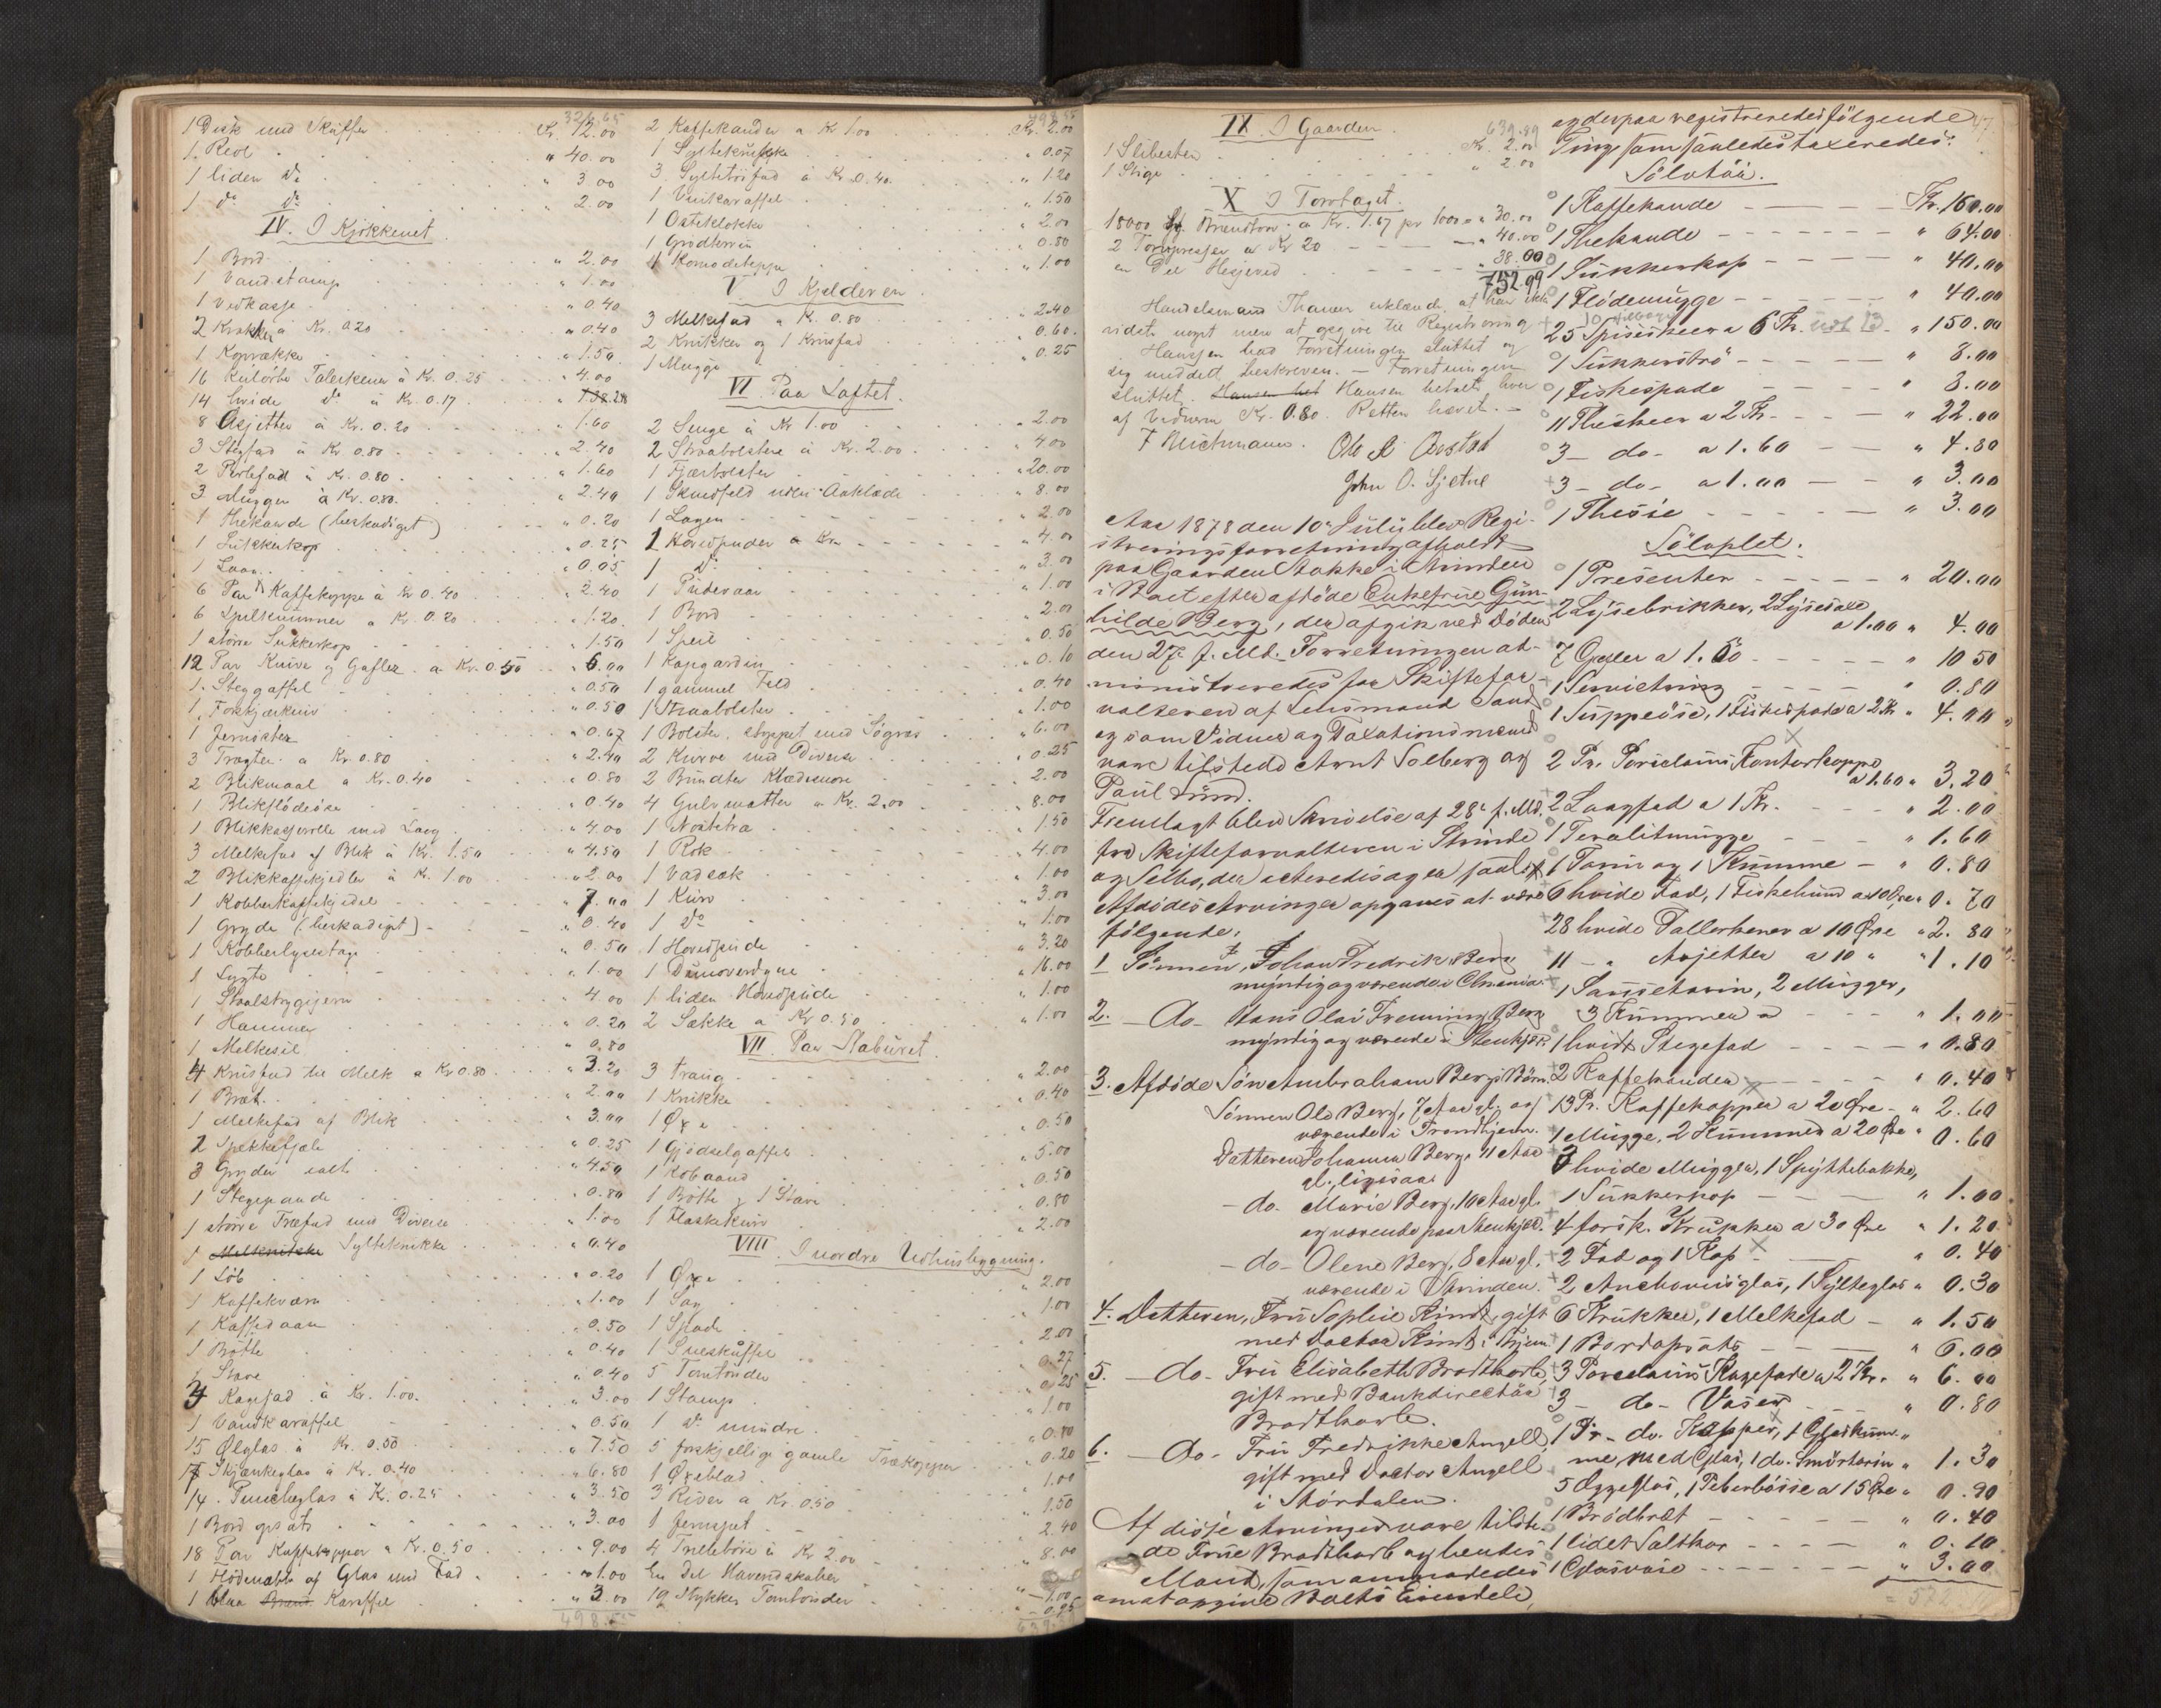 326.65
1 Disk med Skuffer Kr. 12.00
1 Reol " 40.00
1 liden do " 3.00
1 do do " 2.00
IV. I Kjøkkenet
1 Bord " 2.00
1 Vandstamp " 1.00
1 Vedkasse " 0.40
2 Krakker à Kr. 0.20 " 0.40
1 Koprække " 1.50
16 kulørte Talerkener à Kr. 0.25 " 4.00
14 hvide do à Kr. 0.17 "
8 Asjetter à Kr. 0.20 " 1.60
3 Stegfad à Kr 0.80 " 2.40
2 Perlefad à Kr. 0.80 " 1.60
3 Mugger à Kr. 0.80. " 2.40
1 Thekande (beskadiget) " 0.20
1 Sukkerkop " 0.25
1 Laag " 0.05
6 Par Kaffekopper à Kr 0.40 " 2.40
6 Spilkummer à Kr. 0.20 " 1.20
1 større Sukkerkop " 1.50
12 Par Knive og Gafler à Kr. 0.50 " 6.00
1 Steggaffel " 0.50
1 Forskjærkniv " 0.50
1 " 0.67
3 Tragter à Kr. 0.80 " 2.40
2 Blikmaal à Kr. 0.40 " 0.80
1 Blikflødeøse " 0.40
1 Blikkasserolle med Laag " 4.00
3 Melkefad af Blik à Kr. 1.50 " 4.50
2 Blikkaffekjedler à Kr. 1.00 " 2.00
1 Kobberkaffekjedel " 7.00
1 Gryde (beskadiget) " 0.40
1 Kobberlysestage " 0.50
1 Lygte " 1.00
1 Staalstrygejern " 4.00
1 Hammer " 0.20
1 Melkesil " 0.80
4 Krusfad til Melk à Kr 0.80 " 3.20
1 Bræt " 2.00
1 Melkefad af Blik " 3.00
2 Spekkefjæle " 0.25
3 Gryder ialt " 4.50
1 Stegepande " 0.80
1 større Træfad med Diverse " 1.00
1 Sylteknikke " 0.40
1 Løb " 0.20
1 Kaffekværn " 1.00
1 Kaffedaase " 0.50
1 Bøtte " 0.40
1 Stave " 0.40
3 Kagefad à Kr. 1.00. " 3.00
1 Vandkaraffel " 0.50
15 Ølglas à Kr. 0.50 " 7.50
17 Skjænkeglas à Kr. 0.40 " 6.80
14. Puncheglas à Kr. 0.25 " 3.50
1 Bord opsats " 3.00
18 Par Kaffekopper à Kr. 0.50 " 9.00
1 Flødenæb af Glas med Fad " 1.00
1 blaa Karaffel " 3.00
498.55
498.55
2 Kaffekander à Kr 1.00 Kr. 2.00
1 Syltekrukke " 0.07
3 Syltetøifad à Kr 0.40 " 1.20
1 Vinkaraffel " 1.50
1 Osteklokke " 2.00
1 Grødterrin " 0.80
1 Komodeteppe " 1.00
V. I Kjelderen
3 Melkefad à Kr. 0.80 " 2.40
2 Knikker og 1 Krusfad 0.60.
1 Mugge " 0.25
VI Paa Loftet.
2 Senge à Kr 1.00 " 2.00
2 Straabolstere à Kr. 2.00 " 4.00
1 Fjærbolster " 20.00
1 Skindfeld uden Aaklæde " 8.00
1 Lagen " 2.00
2 Hovedpuder à Kr. " 4.00
1 do " 3.00
1 Pudevaar " 1.00
1 Bord " 2.00
1 Speil " 0.50
1 Kapgardin " 0.10
1 gammel Feld " 0.40
1 Straabolster " 1.00
1 Bolster, stoppet med Søgræs " 6.00
2 Kurve med Diverse " 0.25
2 Bundter Klædesnore 2.00
4 Gulvmatter à Kr. 2.00 " 8.00
1 Nøstetræ " 1.50
1 Rok " 4.00
1 Vadsæk " 1.00
1 Kurv " 3.00
1 do " 1.00
1 Hovedpude " 3.20
1 Dunoverdyne " 16.00
1 liden Hovedpude " 1.00
2 Sække à Kr 0.50 " 1.00
VII. Paa Staburet
3 traug " 2.00
1 Knikke " 0.40
1 Øxe " 0.50
1 Gjødselgaffel " 5.00
1 " 0.50
1 Bøtte og 1 Stave " 0.80
1 Flaskekurv " 2.00
VIII. I nordre Udhusbygning.
1 Øxe 2.00
1 Sag " 1.00
1 Spade 2.00
1 Sneskuffel 0.27
5 Tomtønder 0.25
1 Stamp " 1.00
1 do mindre " 0.80
5 forskjellige gamle Trækopper " 0.20
1 Øxeblad " 1.00
3 River à Kr. 0.50 1.50
1 Jernspet " 2.40
4 Trillebøre à Kr 2.00 " 8.00
En Del Havredskaber " 1.00
19 Stykker Tomtønder " 0.95
639.89
IX. I Gaarden. 639.89
1 Slibesten Kr. 2.00
1 Stige " 2.00
X I Torvtaget.
18000 Brændtorv à Kr. 1.67 pr 1000 " 30.00
2 Torvpresser à Kr 20 " 40.00
en Del Hesjeved " 38.00
752.99
Handelsmand Thanem erklærede at han ikke
vidste noget mere at opgive til Registrering
Hanssen bad Forretningen sluttet og
sig meddelt beskreven. — Forretningen
sluttet. Hansen betalte hver
af Vidnerne Kr. 0.80. Retten hævet. —
F Michmann. Ole A Aostad
John O. Sjetne
Aar 1878 den 10de Juli blev Regi-
streringsforretning afholdt
paa Gaarden Stokke i Strinden
i Boet efter afdøde Enkefrue Gun-
hilde Berg, der afgik ved Døden
den 27. f. Md. Forretningen ad-
ministreredes for Skiftefor-
valteren af Lensmand Sand
og som Vidner og Taxationsmænd
vare tilstede Arnt Solberg og
Paul Lund.
Fremlagt blev Skrivelse af 28de f. Md.
fra Skifteforvalteren i Strinde
og Selbo, der acteredes og er saal.
Afdødes Arvinger opgaves at være
følgende:
1 Sønnen, Johan Fredrik Berg
myndig og værende i Chrania.
2. — do — Hans Olai Fremming Berg
myndig og værende i Stenkjær.
3. Afdøde Søn Ambraham Bergs Børn.
Sønnen Ole Berg, 7 Aar gl. og
værende i Trondhjem.
Datteren Johanna Berg, 11 Aar
gl., ligesaa.
— do. Marie Berg, 10 Aar gl.
og værende paa Stenkjær.
— do — Olene Berg, 8 Aar gl.
værende i Strinden.
4. Datteren, Fru Sophie Kindt, gift
med Doctor Kindt i Thjem
5. — do — Fru Elisabeth Brodtkorb,
gift med Bankdirectør
Brodtkorb.
6. — do — Fru Fredrikke Angell
gift med Doctor Angell
i Størdalen.
Af disse Arvinger vare tilste-
de Frue Brodtkorb og hendes
Mand, som anmodedes
om at opgive Boets Eiendele,
47
og derpaa registreredes følgende
Ting som saaledes taxeredes:
Sølvtøi.
1 Kaffekande Kr. 160.00
1 Thekande " 64.00
1 Sukkerkop " 40.00
1 Flødemugge " 40.00
25 Spiseskeer a 6 Kr. " 150.00
1 Sukkerstrø " 8.00
1 Fiskespade " 8.00
11 Theskeer a 2 Kr. " 22.00
3 — do — a 1.60 " 4.80
3 — do — a 1.00 " 3.00
1 Thesie " 3.00
Sølvplet.
1 Presenter " 20.00
2 Lysebrikker, 2 Lysesaxe
a 1.00 " 4.00
7 Gafler a 1.50 " 10 50
1 Servietring " 0.80
1 Suppeøse, 1 Fiskespade a 2 Kr " 4.00
2 Pr. Porcelains Kontorkopper
a 1.60 " 3.20
2 Laagfad a 1 Kr. " 2.00
1 Teralitmugge " 1.60
1 Terrin og 1 Kumme " 0.80
6 hvide Fad, 1 Fiskehund a 10 Øre " 0.70
28 hvide Tallerkener a 10 Øre " 2.80
11 — " Asjetter a 10 " " 1.10
1 Sausseterin, 2 Mugger,
3 Kummer a " 1.00
1 hvidt Stegefad " 0.80
2 Kaffekander " 0.40
13 Pr. Kaffekopper a 20 Øre " 2.60
1 Mugge, 2 Kummer a 20 Øre " 0.60
3 hvide Mugger, 1 Spyttebakke,
1 Sukkerkop " 1.00
4 forsk. Krukker a 30 Øre " 1.20
2 Fad og 1 Kop " 0.40
2 Anchovisglas, 1 Sylteglas " 0.30
6 Krukker, 1 Melkefad " 1.50
1 Bordopsats " 6.00
3 Porcelains Kagefade a 2 Kr. " 6.00
3 — do — Vaser " 0.80
1 Pr. do. Kopper, 1 Glaskum-
me med Glas, 1 do. Smørterin " 1.30
5 Æggeglas, 1 Peberbøsse a 15 Øre " 0.90
1 Brødbræt " 0.40
1 lidet Saltkar " 0.10
1 Glasvase " 3.00